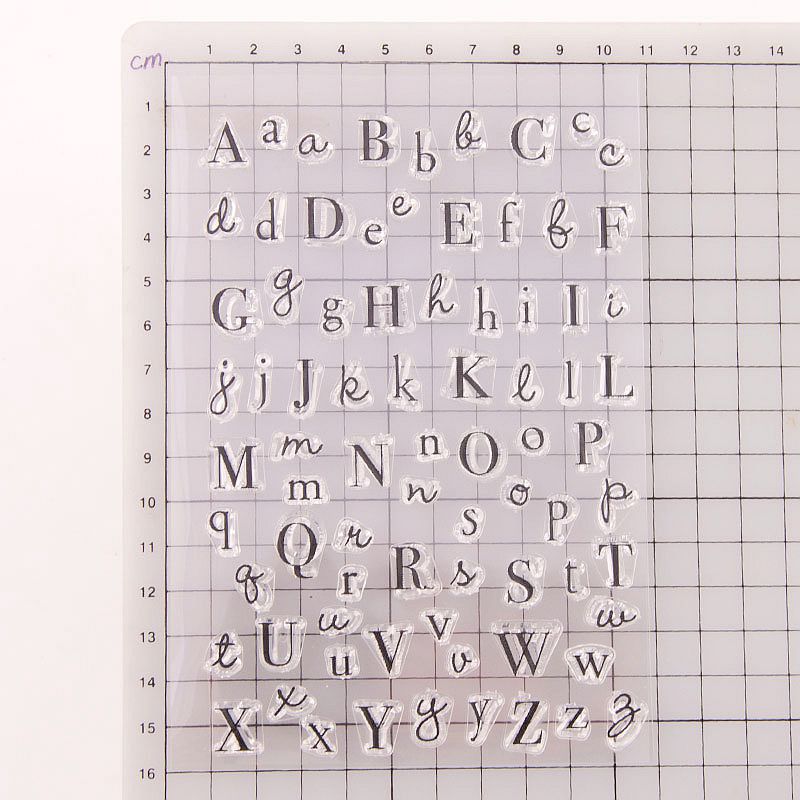 1 2 3 4 5 6 7 8 9 10 11 12 13 14
cm
1
2
3
4
5
6
7
8
9
10
11
12
13
14
15
16
A a a B b b C c c
d d D e e E f f F
G g g H h h i I i
j j J k k K l l L
M m m N n n O o o P p p
q Q q r r R s s S t T
t U u u V v v W w w
X x x Y y y Z z z